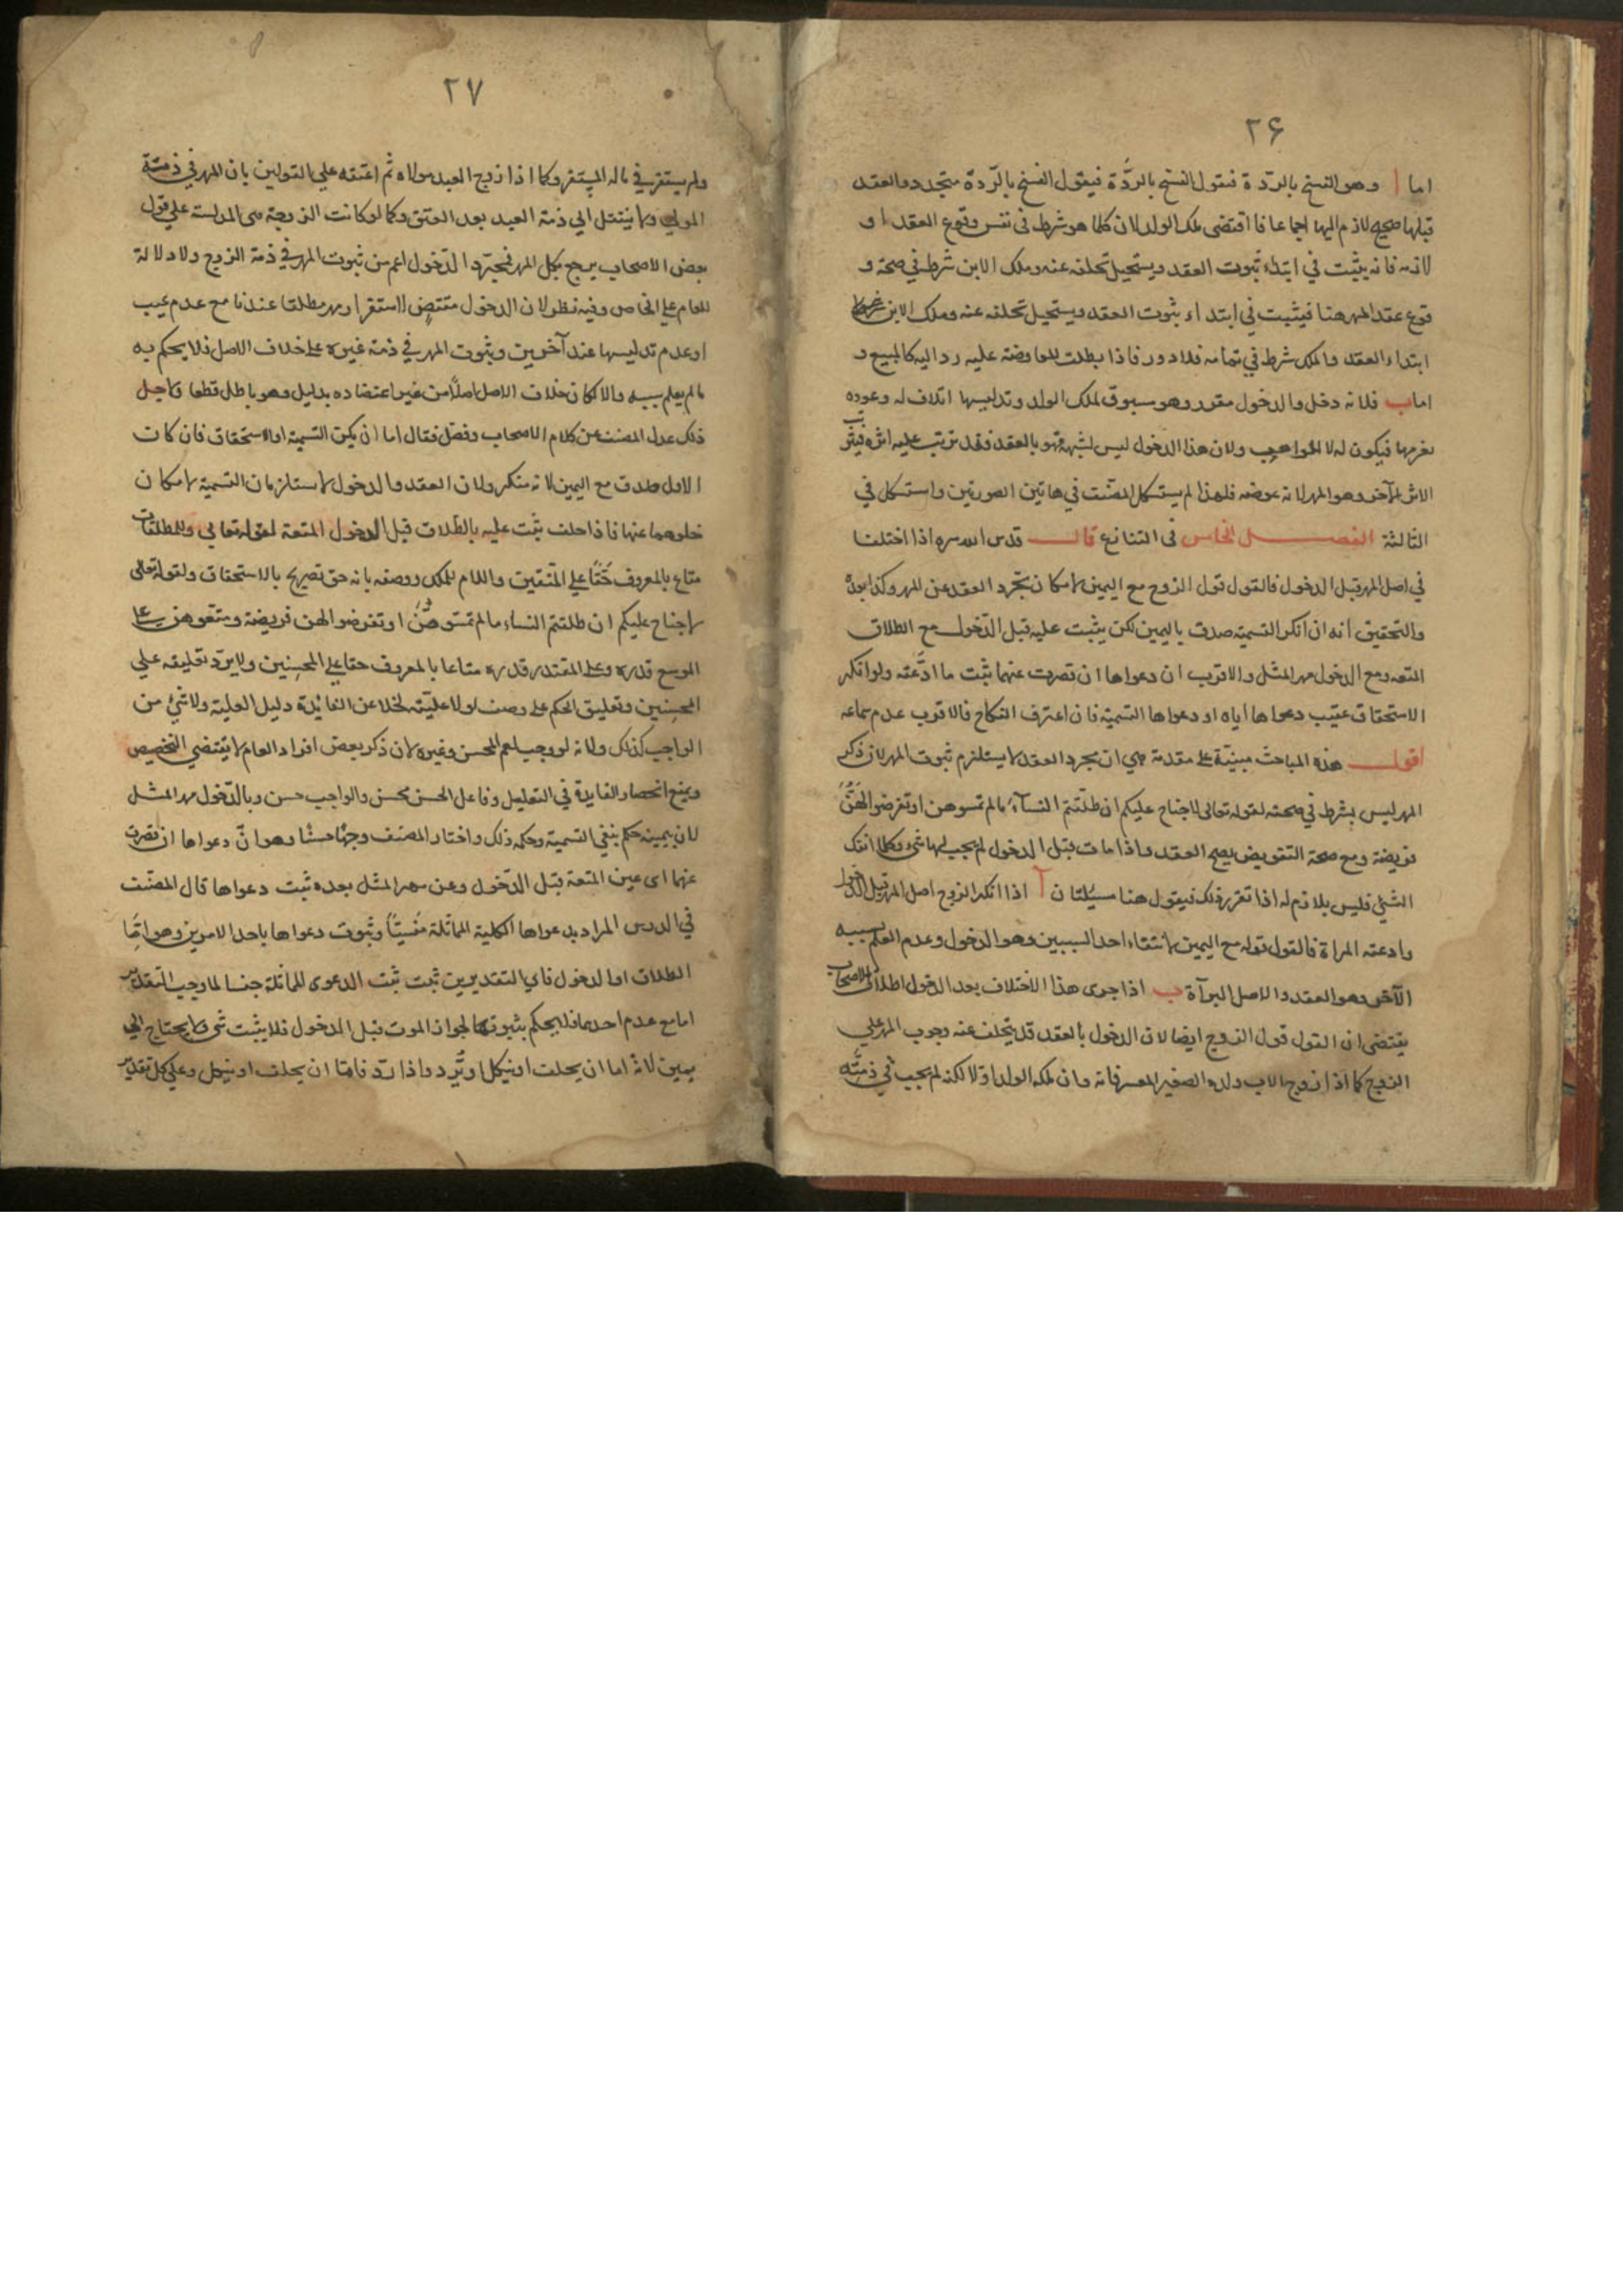 ٢۶
اما ا وهو الفسخ بالردّة فنقول الفسخ بالردّة فيقول الفسخ بالردّة متجدد والعقد
قبلها صحيح لازم اليها اجماعا فاقتضى ملك الولد لان كلما هو شرط فى نفس وقوع العقد او
لازمه فانه يثبت في ابتداء ثبوت العقد ويستحيل تخلفه عنه وملك الابن شرط في صحة و
قوع عقد المهر هنا فيثبت في ابتداء ثبوت العقد ويستحيل تخلفه عنه وملك الابن
ابتداء العقد والملك شرط في تمامه فلا دور فاذا بطلت المعاوضة عليه رد اليه كالمبيع و
اما ب فلانه دخل والدخول مقرر وهو مسبوق لملك الولد وتدليسها اتلاف له وعوده
بغرمها فيكون له لا ولان هذا الدخول ليس لشبهة فهو بالعقد فقد ترتب عليه اثره فيترتب
الاثر الآخر وهو المهر لانه عوضه فلهذا لم يستشكل المصنّف في هاتين الصورتين واستشكل في
الثالثة الفصل الخامس فى التنازع قال قدس الله سره اذا اختلفا
في اصل المهر قبل الدخول فالقول قول الزوج مع اليمين لامكان تجرد العقد عن المهر وكذا بعده
والتحقيق انه ان انكر التسمية صدق باليمين لكن يثبت عليه قبل الدّخول مع الطلاق
المتعه ومع الدخول مهر المثل والاقرب ان دعواها ان قصرت عنهما ثبت ما ادّعته ولو انكر
الاستحقاق عقيب دعواها اياه او دعواها التسمية فان اعترف النكاح فالاقرب عدم سماعه
اقول هذه المباحث مبنيّة على مقدمة هي ان مجرد العقد لا يستلزم ثبوت المهر لان ذكر
المهر ليس بشرط في صحته لقوله تعالى لا جناح عليكم ان طلّقتم النسآء ما لم تمسوهن او تفرضوا لهنّ
فريضة ومع صحة التفويض يصح العقد واذا مات قبل الدخول لم يجب لها شئ وكلما انفك
الشئ فليس بلازم له اذا تقرر ذلك فيقول هنا مسئلتان آ اذا انكر الزوج اصل المهر قبل الدخول
وادعته المراة فالقول قوله مع اليمين لانتفاء احد السببين وهو الدخول وعدم العلم بسببيه
الآخر وهو العقد والاصل البرآة ب اذا جرى هذا الاختلاف بعد الدخول اطلاق الاصحاب
يقتضى ان القول قول الزوج ايضا لان الدخول بالعقد قد يتخلف عنه وجوب المهر على
الزوج كما اذا زوج الاب ولده الصغير المعسر فانه وان ملكه الولد اولا لكنه لم يجب في ذمّته
٢٧
ولم يستقر في ماله المستقر وكما اذا زوج العبد مولاه ثم اعتقه على القولين بان المهر في ذمّة
المولى ولا ينتقل الى ذمة العبد بعد العتق وكما لو كانت الزوجة هى المدلسة على قول
بعض الاصحاب يرجع بكل المهر فمجرّد الدّخول اعم من ثبوت المهر في ذمة الزوج ولا دلالة
للعام على الخاص وفيه نظر لان الدخول مقتضٍ لاستقرار مهر مطلقا عندنا مع عدم عيب
او عدم تدليسها عند آخرين وثبوت المهر في ذمة غيره على خلاف الاصل فلا يحكم به
ما لم يعلم سببه والا لكان خلاف الاصل اصلاً من غير اعتضاده بدليل وهو باطل قطعا لاجل
ذلك عدل المصنف عن كلام الاصحاب وفصّل فقال اما ان يكون التسمية او الاستحقاق فان كان
الاول صدق مع اليمين لانه منكر ولان العقد والدخول لا يستلزمان التسمية لامكان
خلوهما عنها فاذا حلف يثبت عليه بالطلاق قبل الدخول المتعة لقوله تعالى وللمطلقات
متاع بالمعروف حقّا على المتّقين واللام للملك ووصفه بانه حق تصريح بالاستحقاق ولقوله تعالى
لا جناح عليكم ان طلقتم النساء ما لم تمسّوهنّ او تفرضوا لهن فريضة ومتّعوهن على
الموسع قدره وعلى المقتدر قدره متاعا بالمعروف حقا على المحسنين ولا يردّ تعليقه على
المحسنين وتعليق الحكم على وصف لولا عليّته لخلا عن الفائدة دليل العلية ولا شئ من
الواجب كذلك ولانه لو وجب لعم المحسن وغيره لان ذكر بعض افراد العام لا يقتضي التخصيص
ويمنع انحصار الفايدة في التعليل وفاعل الحسن محسن والواجب حسن وبالدّخول مهر المثل
لان بيمينه حكم بنفي التسمية وحكمه ذلك واختار المصنف وجهًا حسنًا وهو انّ دعواها ان قصرت
عنهما اى عين المتعة قبل الدّخول وعن مهر المثل بعده ثبت دعواها قال المصنّف
في الدرس المراد بدعواها الكلية المماثلة وثبوت دعواها باحد الامرين وهو امّا
الطلاق او الدخول فاي التقديرين ثبت ثبت الدعوى المماثلة جنسا لما وجب التقدير
اما مع عدم احدهما فلا يحكم بثبوتها لجواز الموت قبل الدخول فلا يثبت شئ ولا يحتاج الى
يمين لانّه اما ان يحلف او ينكل او يّرد واذا ردّ فامّا ان يحلف او ينكل وعلى كل تقدير